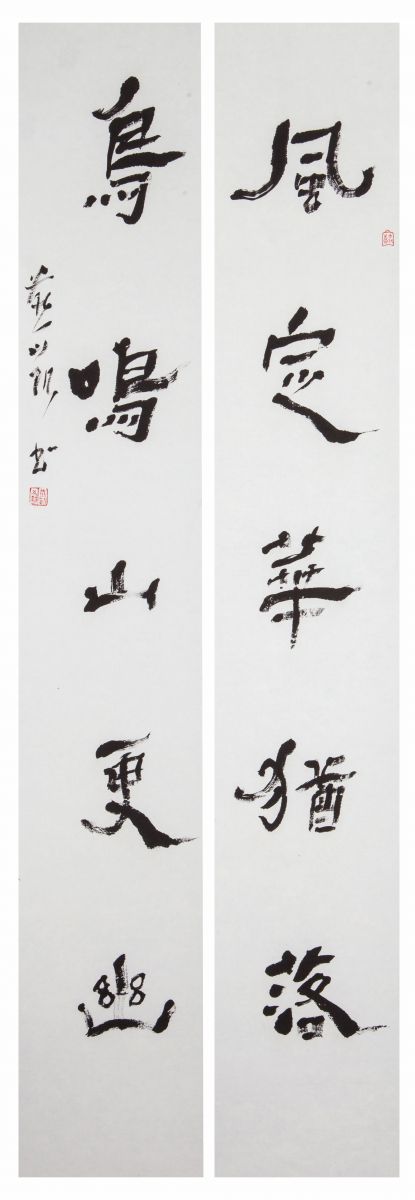 風定華猶落
鳥鳴山更幽
书